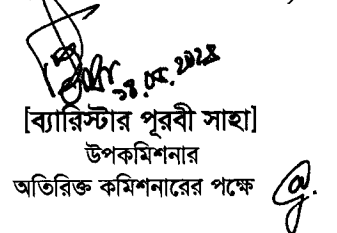 [ব্যারিস্টার পূরবী সাহা]
উপকমিশনার
অতিরিক্ত কমিশনারের পক্ষে